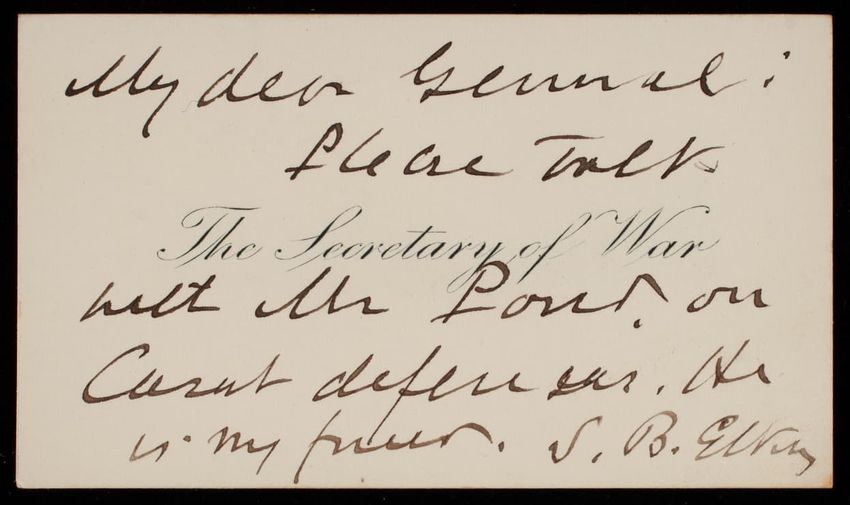 My dear General:
Please Talk
The Secretary of War
with Mr Pond, on
Coast defenses. He
is my friend. S. B. Elkins